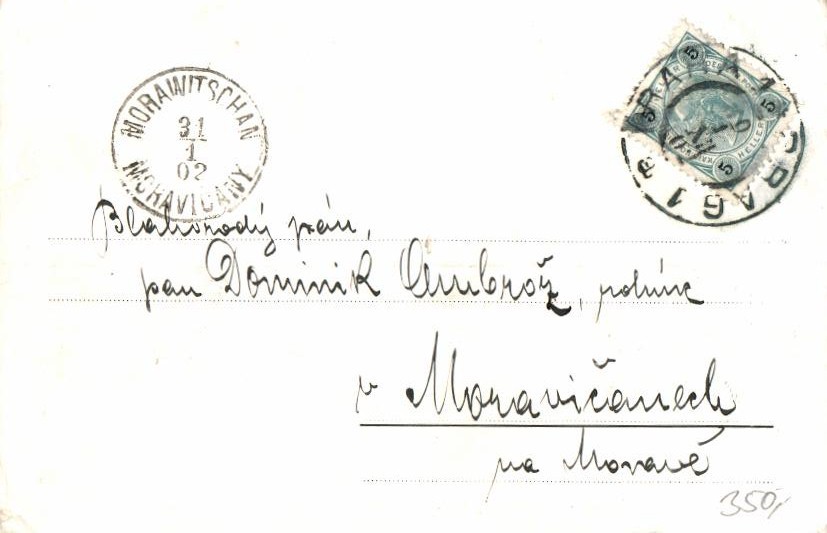 MORAWITSCHAN
31
1
02
MORAVIČANY
PRAHA 1
PRAG 1
5 5
HELLER
5 5
Blahorodý pán,
pan Dominik Ambrož, rolník
v Moravičanech
na Moravě
350,-